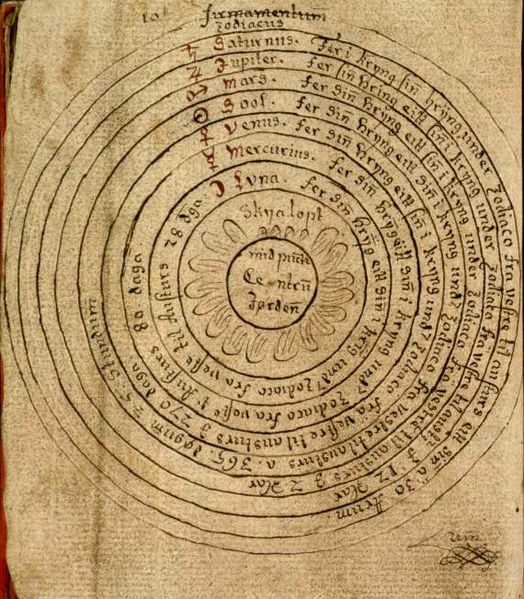 10
firmamentum
Zodiacus
♄ Saturnus. Fer i kryng sin̄ hring under Zodiaco fra vestre til austurs eitt sin̄ a 30 Arum.
♃ Jupiter. Fer sin̄ hring eitt sin̄ i kryng under Zodiaco fra vestre til austurs 12 Aar
♂ Mars. fer sin̄ hryng eitt sin̄ i kryng under Zodiaco fra vestre til austurs 2 Aar
☉ Sool. fer sin̄ kryng eitt sin̄ i kryng und Zodiaco fra vestre til austurs a 365 dagum 5 Stundum
♀ Venus. Fer sin̄ kryng eitt sin̄ i kryng und Zodiaco fra vestre til austurs 270 daga.
☿ Mercurius. Fer sin̄ kryng eitt sin̄ i kryng und Zodiaco fra vestre austurs 80 daga
☽ Lvna. fer sin̄ hryng eitt sin i kryng und Zodiaco fra vestre til austurs 28 dga
Skyalopt
mid
Centru
Jørden̄
um